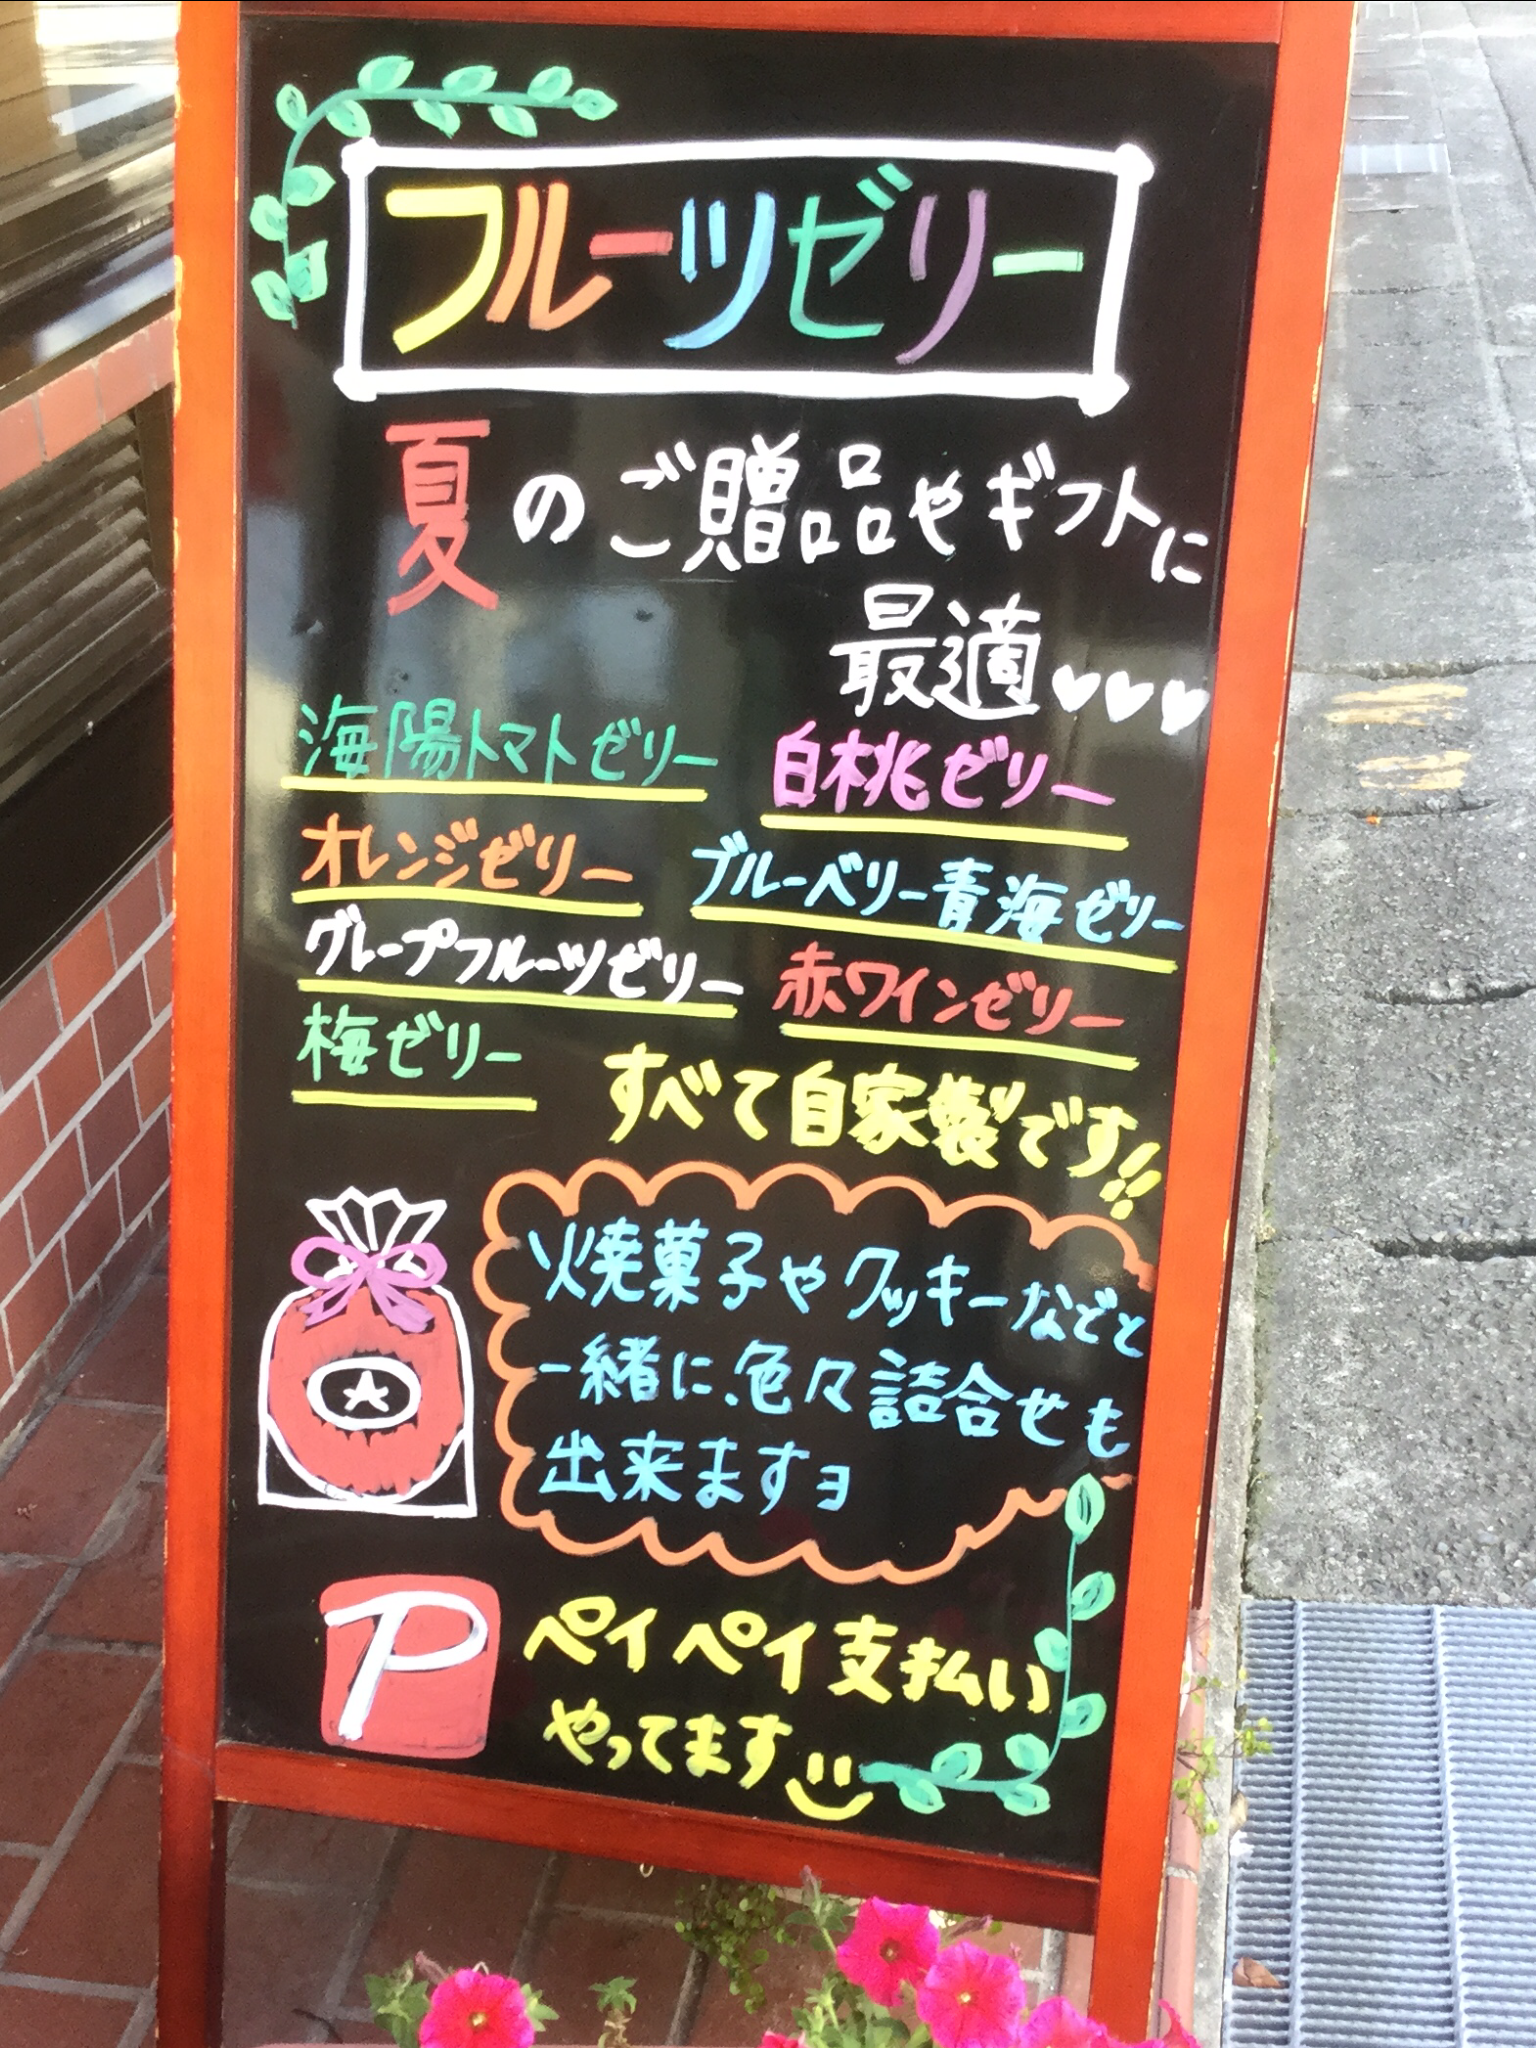 フルーツゼリー
夏のご贈品やギフトに
最適♥♥♥
海陽トマトゼリー
白桃ゼリー
オレンジゼリー
ブルーベリー青海ゼリー
グレープフルーツゼリー
赤ワインゼリー
梅ゼリー
すべて自家製です!!
焼菓子やクッキーなどと
一緒に、色々詰合せも
出来ますヨ
P
ペイペイ支払い
やってます